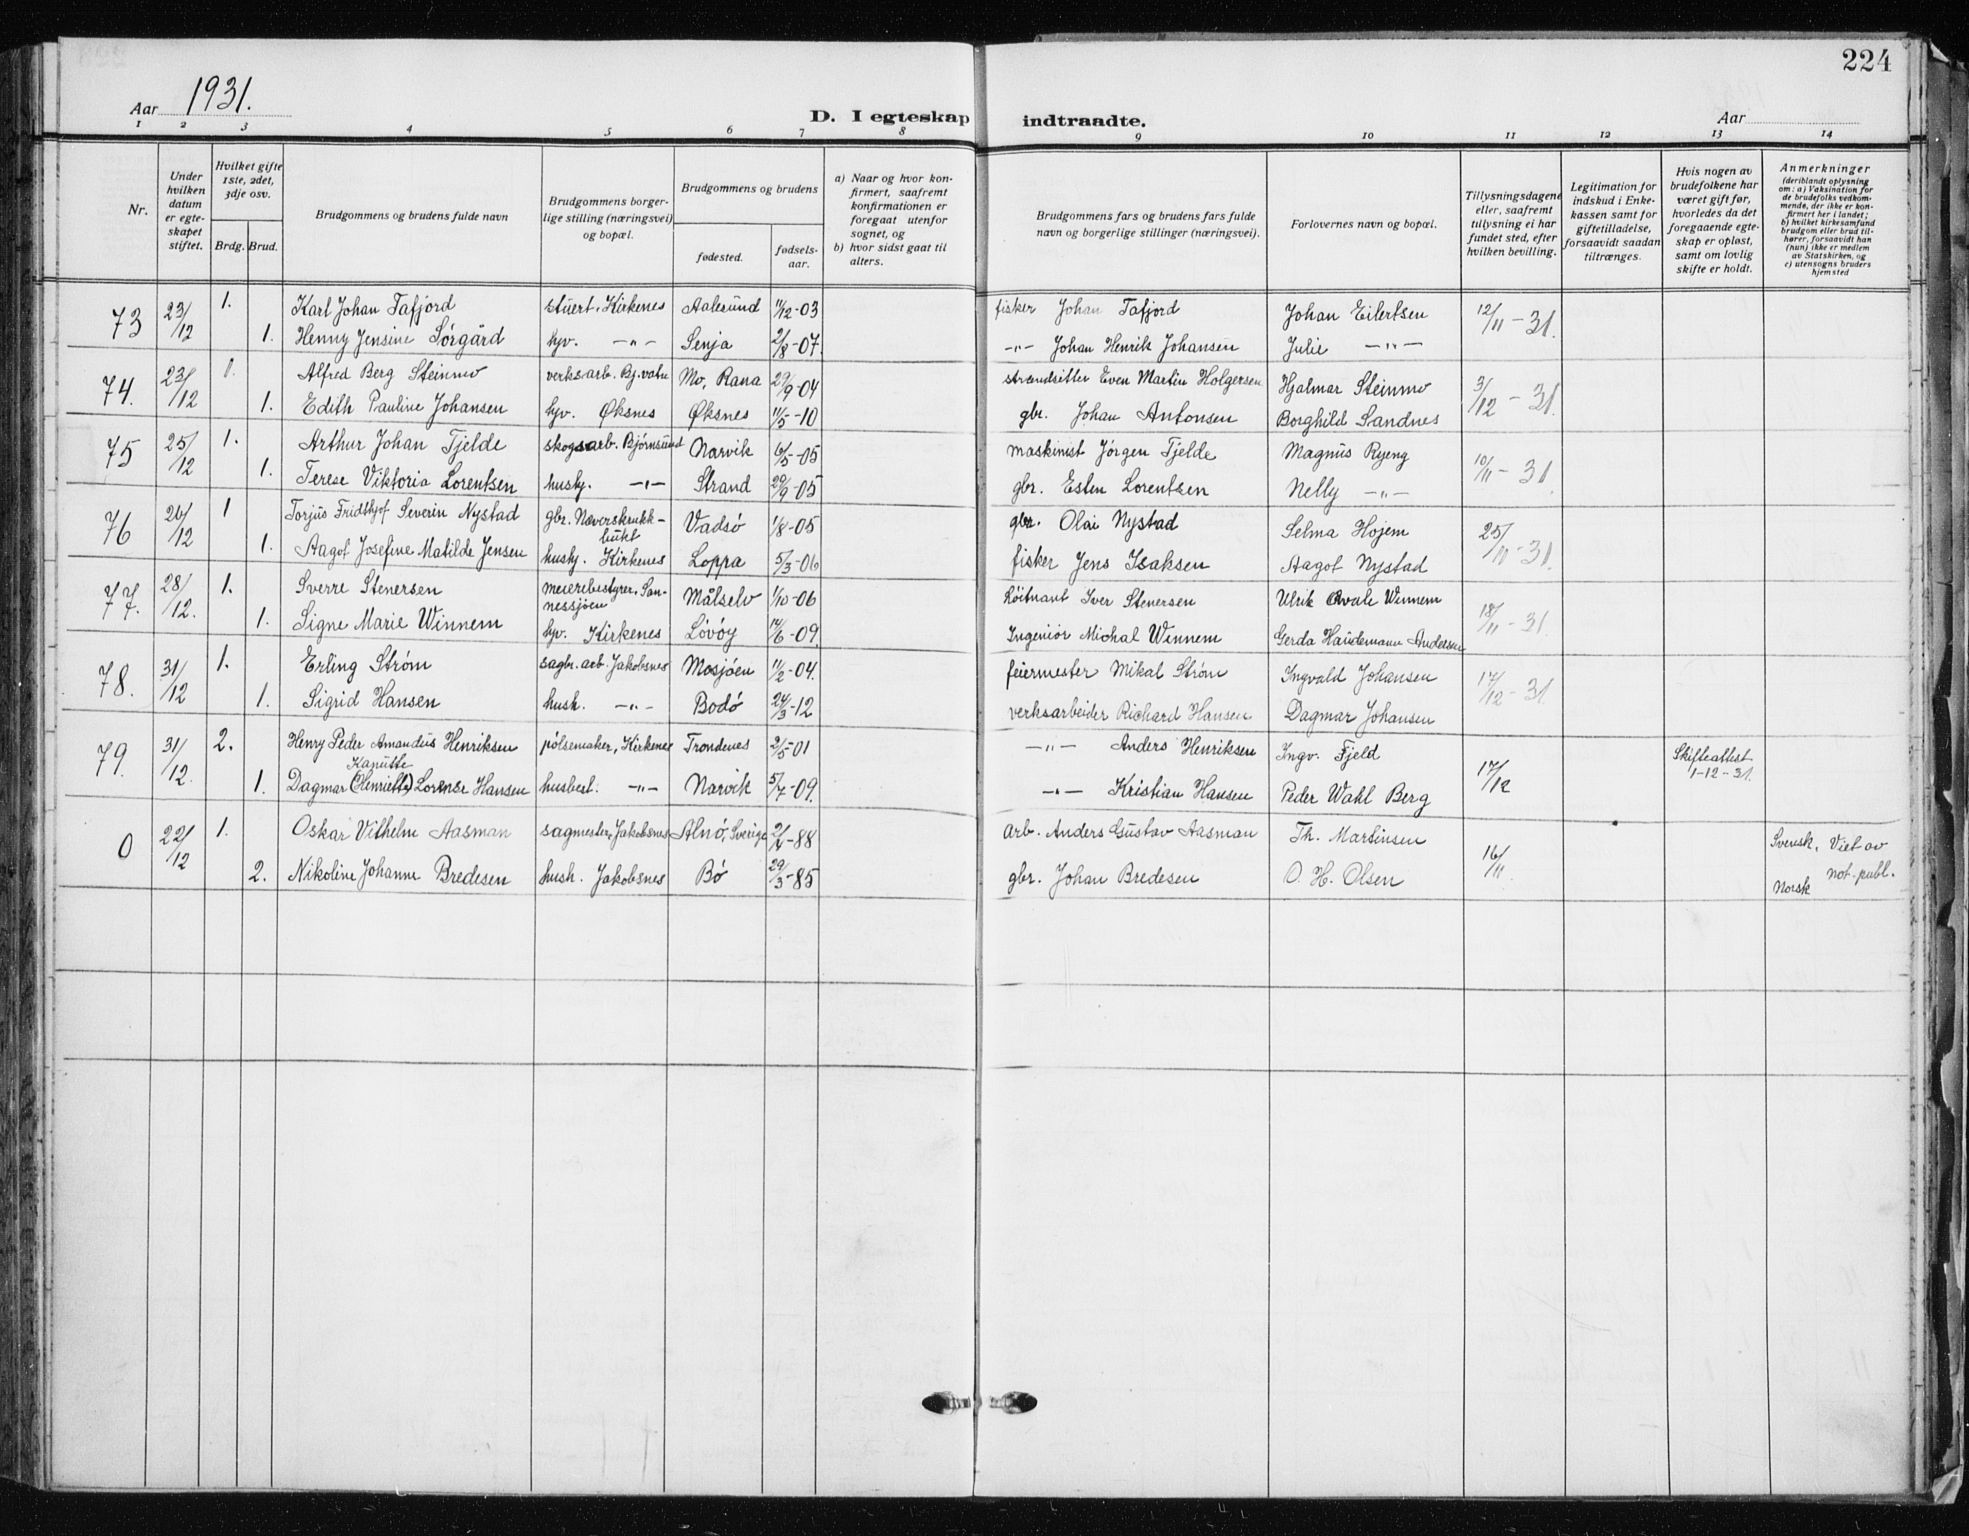 224
Aar 1931.
D. I egteskap indtraadte.
Aar
1 2 3 4 5 6 7 8 9 10 11 12 13 14
Nr.
Under hvilken datum er egteskapet stiftet.
Hvilket gifte 1ste, 2det, 3dje osv.
Brdg. Brud.
Brudgommens og brudens fulde navn
Brudgommens borgerlige stilling (næringsvei) og bopæl.
Brudgommens og brudens
fødested.
fødselsaar.
a) Naar og hvor konfirmert, saafremt konfirmationen er foregaat utenfor sognet, og
b) hvor sidst gaat til alters.
Brudgommens fars og brudens fars fulde navn og borgerlige stillinger (næringsvei).
Forlovernes navn og bopæl.
Tillysningsdagene eller, saafremt tillysning ei har fundet sted, efter hvilken bevilling.
Legitimation for indskud i Enkekassen samt for giftetilladelse, forsaavidt saadan tiltrænges.
Hvis nogen av brudefolkene har været gift før, hvorledes da det foregaaende egteskap er opløst, samt om lovlig skifte er holdt.
Anmerkninger (deriblandt oplysning om: a) Vaksination for de brudefolks vedkommende, der ikke er konfirmert her i landet; b) hvilket kirkesamfund brudgom eller brud tilhører, forsaavidt han (hun) ikke er medlem av Statskirken, og c) utensogns bruders hjemsted
73 23/12 1. Karl Johan Tafjord stuert. Kirkenes Aalesund 11/12-03 fisker Johan Tafjord Johan Eilertsen 12/11-31.
1. Henny Jensine Sørgård hjv. -"- Senja 2/8-07. -"- Johan Henrik Johansen Julie -"-
74. 23/12 1. Alfred Berg Steinmo verksarb. Bj.vatn Mo, Rana 29/9-04 strandsitter Even Martin Holgersen Hjalmar Steinmo 3/12-31.
1. Edith Pauline Johansen hjv. Øksnes Øksnes 11/5-10 gbr. Johan Antonsen Borghild Sandnes
75 25/12 1. Arthur Johan Tjelde skogsarb. Bjørnsund Narvik 6/5-05 maskinist Jörgen Tjelde Magnus Ryeng 10/11-31
1. Terese Viktoria Lorentsen husbj. -"- Strand 29/9-05 gbr. Esten Lorentsen Nelly -"-
76 26/12 1 Torjus Fridthjof Severin Nystad gbr. Neverskrukkbukt Vadsö 1/8-05 gbr. Olai Nystad Selma Hojem 25/11-31.
1. Aagot Josefine Matilde Jensen husbj. Kirkenes Loppa 5/3-06 fisker Jens Isaksen Aagot Nystad
77. 28/12. 1. Sverre Stenersen meieribestyrer. Sannessjöen Målselv 1/10-06 Löitnant Iver Stenersen Ulrik Winnem 18/11-31
1. Signe Marie Winnem hjv. Kirkenes Lövöy 14/6-09. Ingeniör Michal Winnem Gerda Andersen
78. 31/12 1. Erling Ström sagbr. arb. Jakobsnes Mosjöen 11/2-04. feiermester Mikal Ström Ingvald Johansen 17/12-31
1. Sigrid Hansen hush. -"- Bodö 24/3-12 verksarbeider Richard Hansen Dagmar Johansen
79. 31/12. 2. Henry Peder Amandus Henriksen pölsemaker, Kirkenes Trondenes 2/5-01 -"- Anders Henriksen Ingv. Fjeld 17/12 Skifteattest 1-12-31.
Kanutte
1. Dagmar (Henriette) Lorense Hansen husbest. -"- Narvik 5/7-09. -"- Kristian Hansen Peder Wahl Berg
0 22/12 1. Oskar Vilhelm Aasman sagmester, Jakobsnes Alnö, Sverige 2/4-88 arb. Anders Gustav Aasman Th. Martinsen 16/11 Svensk. Viet av
2. Nikoline Johanne Bredesen hush. Jakobsnes Bö 29/3-85 gbr. Johan Bredesen O. H. Olsen Norsk not. publ.